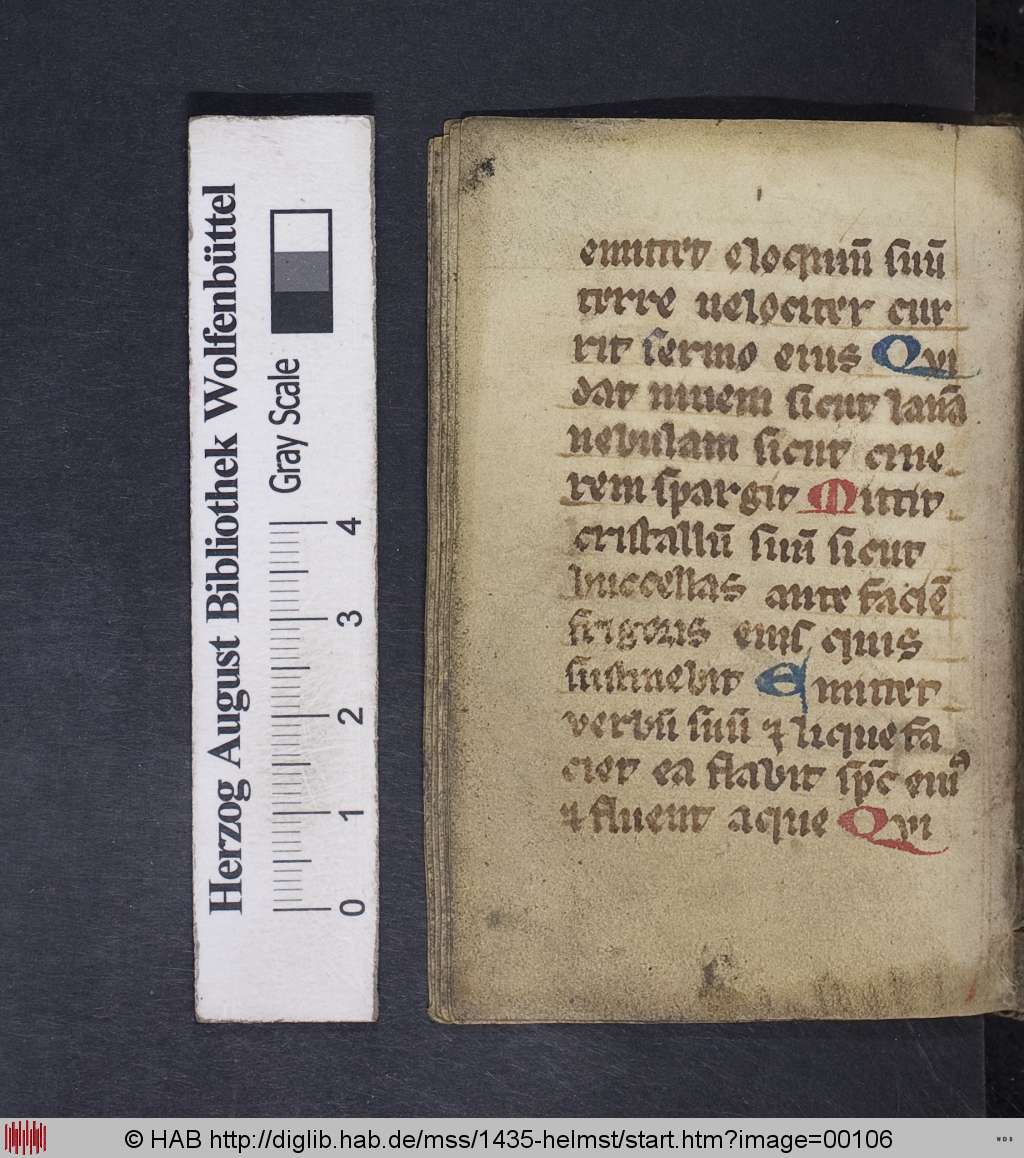 Herzog August Bibliothek Wolfenbüttel
Gray Scale
0 1 2 3 4
emittet eloquiū suū
terre uelociter cur
rit sermo eius Qvi
dat niuem sicut lanā
nebulam sicut cine
rem spargit Mittit
cristallū suū sicut
buccellas ante faciē
frigoris eius quis
sustinebit Emittet
verbū suū ⁊ liquefa
ciet ea flabit sp̄c eiꝰ
⁊ fluent aque Qvi
© HAB http://diglib.hab.de/mss/1435-helmst/start.htm?image=00106
HAB